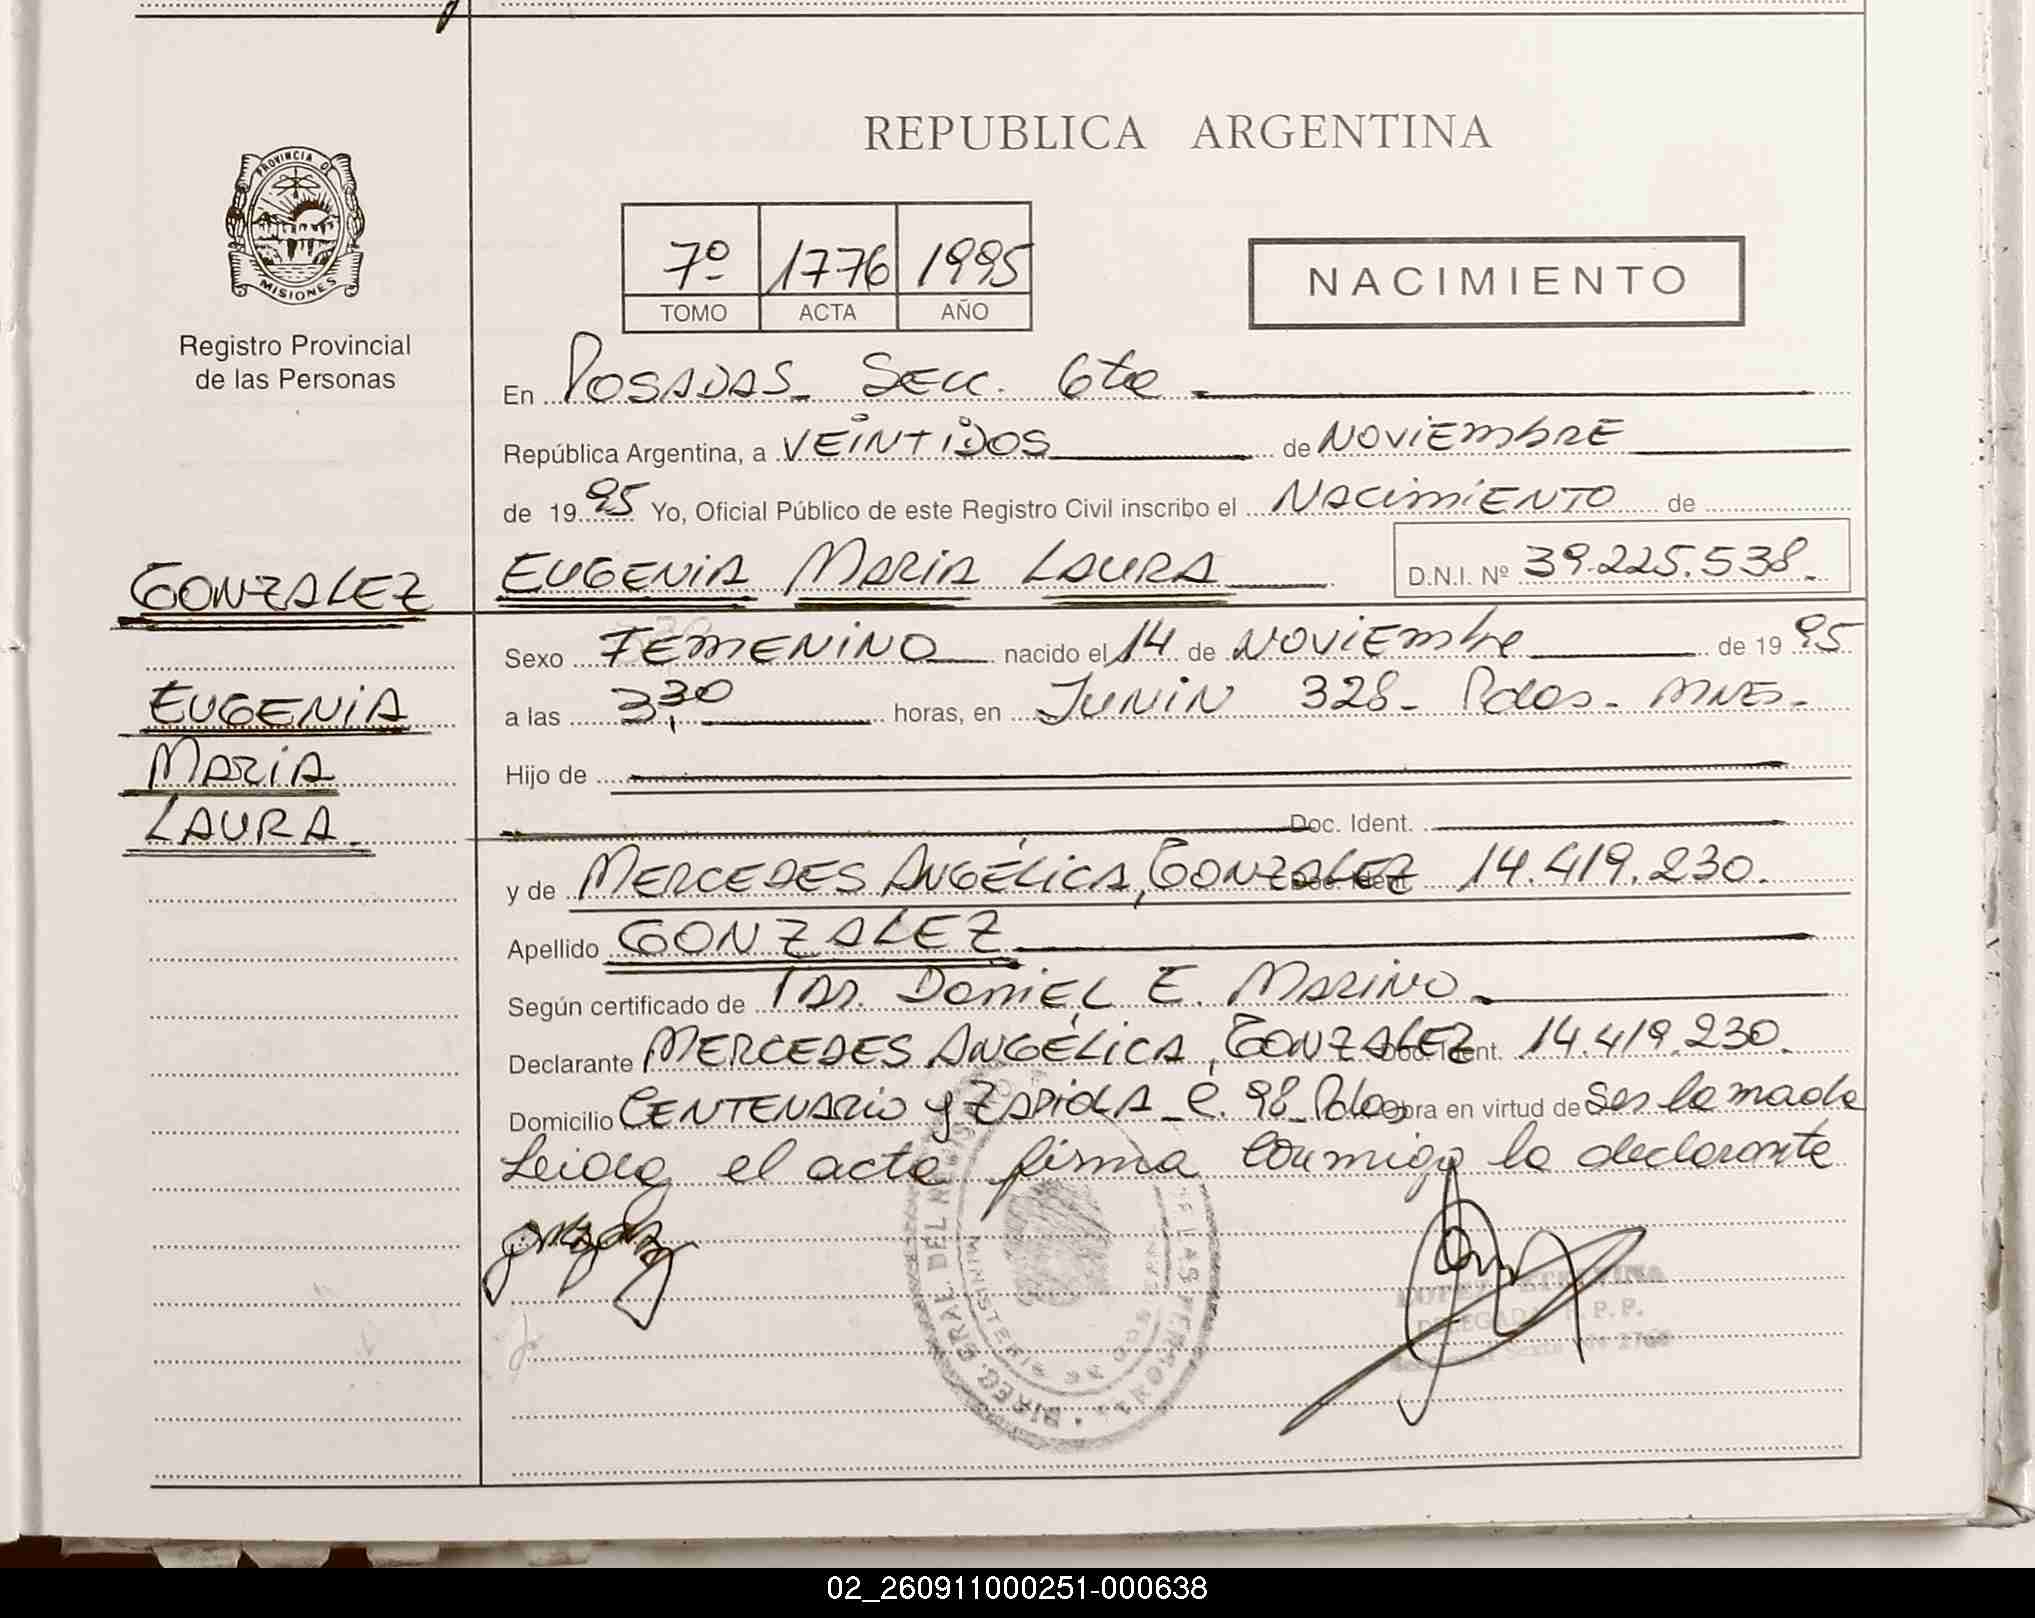 REPUBLICA ARGENTINA
PROVINCIA DE
MISIONES
Registro Provincial
de las Personas
7º 1776 1995
TOMO ACTA AÑO
NACIMIENTO
En POSADAS_ SECC. 6ta
República Argentina, a VEINTIDOS de NOVIEMBRE
de 1995 Yo, Oficial Público de este Registro Civil inscribo el NACIMIENTO de
GONZALEZ
EUGENIA MARIA LAURA D.N.I. Nº 39.225.538.
Sexo FEMENINO nacido el 14 de NOVIEMbre de 1995
EUGENIA
a las 3,30 horas, en JUNIN 328_ Pdas. MNES.
MARIA
Hijo de
LAURA.
Doc. Ident.
y de MERCEDES ANGÉLICA, GONZALEZ Doc. Ident. 14.419.230.
Apellido GONZALEZ
Según certificado de DANIEL E. MARINO
Declarante MERCEDES ANGÉLICA, GONZALEZ Doc. Ident. 14.419.230.
Domicilio CENTENARIO y ZAPIOLA _ C. 98_ Pdas obra en virtud de ser la madre
Leida el acta firma conmigo la declarante
DIREC. GRAL. DEL REGISTRO LAS PERSONAS
MINISTERIO DE GOBIERNO
DELEGADA R.P.P.
02_260911000251-000638